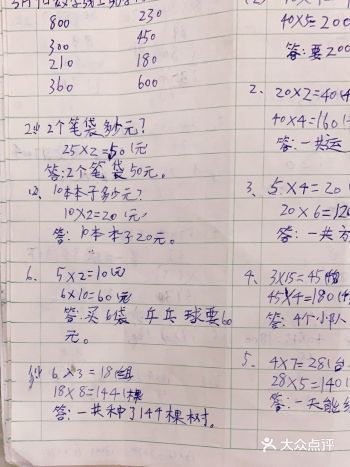 800 230
300 450
210 180
360 600
2个笔袋多少元?
25×2=50(元)
答:2个笔袋50元。
10本本子多少元?
10×2=20(元)
答:10本本子20元。
6. 5×2=10(元)
6×10=60(元)
答:买6袋乒乓球要60
元。
6×3=18(组)
18×8=144(棵)
答:一共种了144棵树。
40×5=200
答:要200
2、20×2=40(
40×4=160(
答:一共运
3、5×4=20(
20×6=120
答:一共
4、3×15=45(
45×4=180(
答:4个小队
5、4×7=28(台
28×5=140(
答:一天能
大众点评